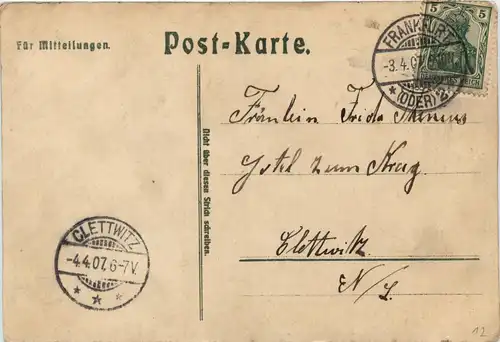 Für Mitteilungen.
Post-Karte.
5 5
FRANKFURT
-3.4.07.
* (ODER) 2
Nicht über diesen Strich schreiben.
Fräulein Frida
Hotel zum Krug
Clettwitz
N/L.
CLETTWITZ
-4.4.07. 6-7V.
* * *
12